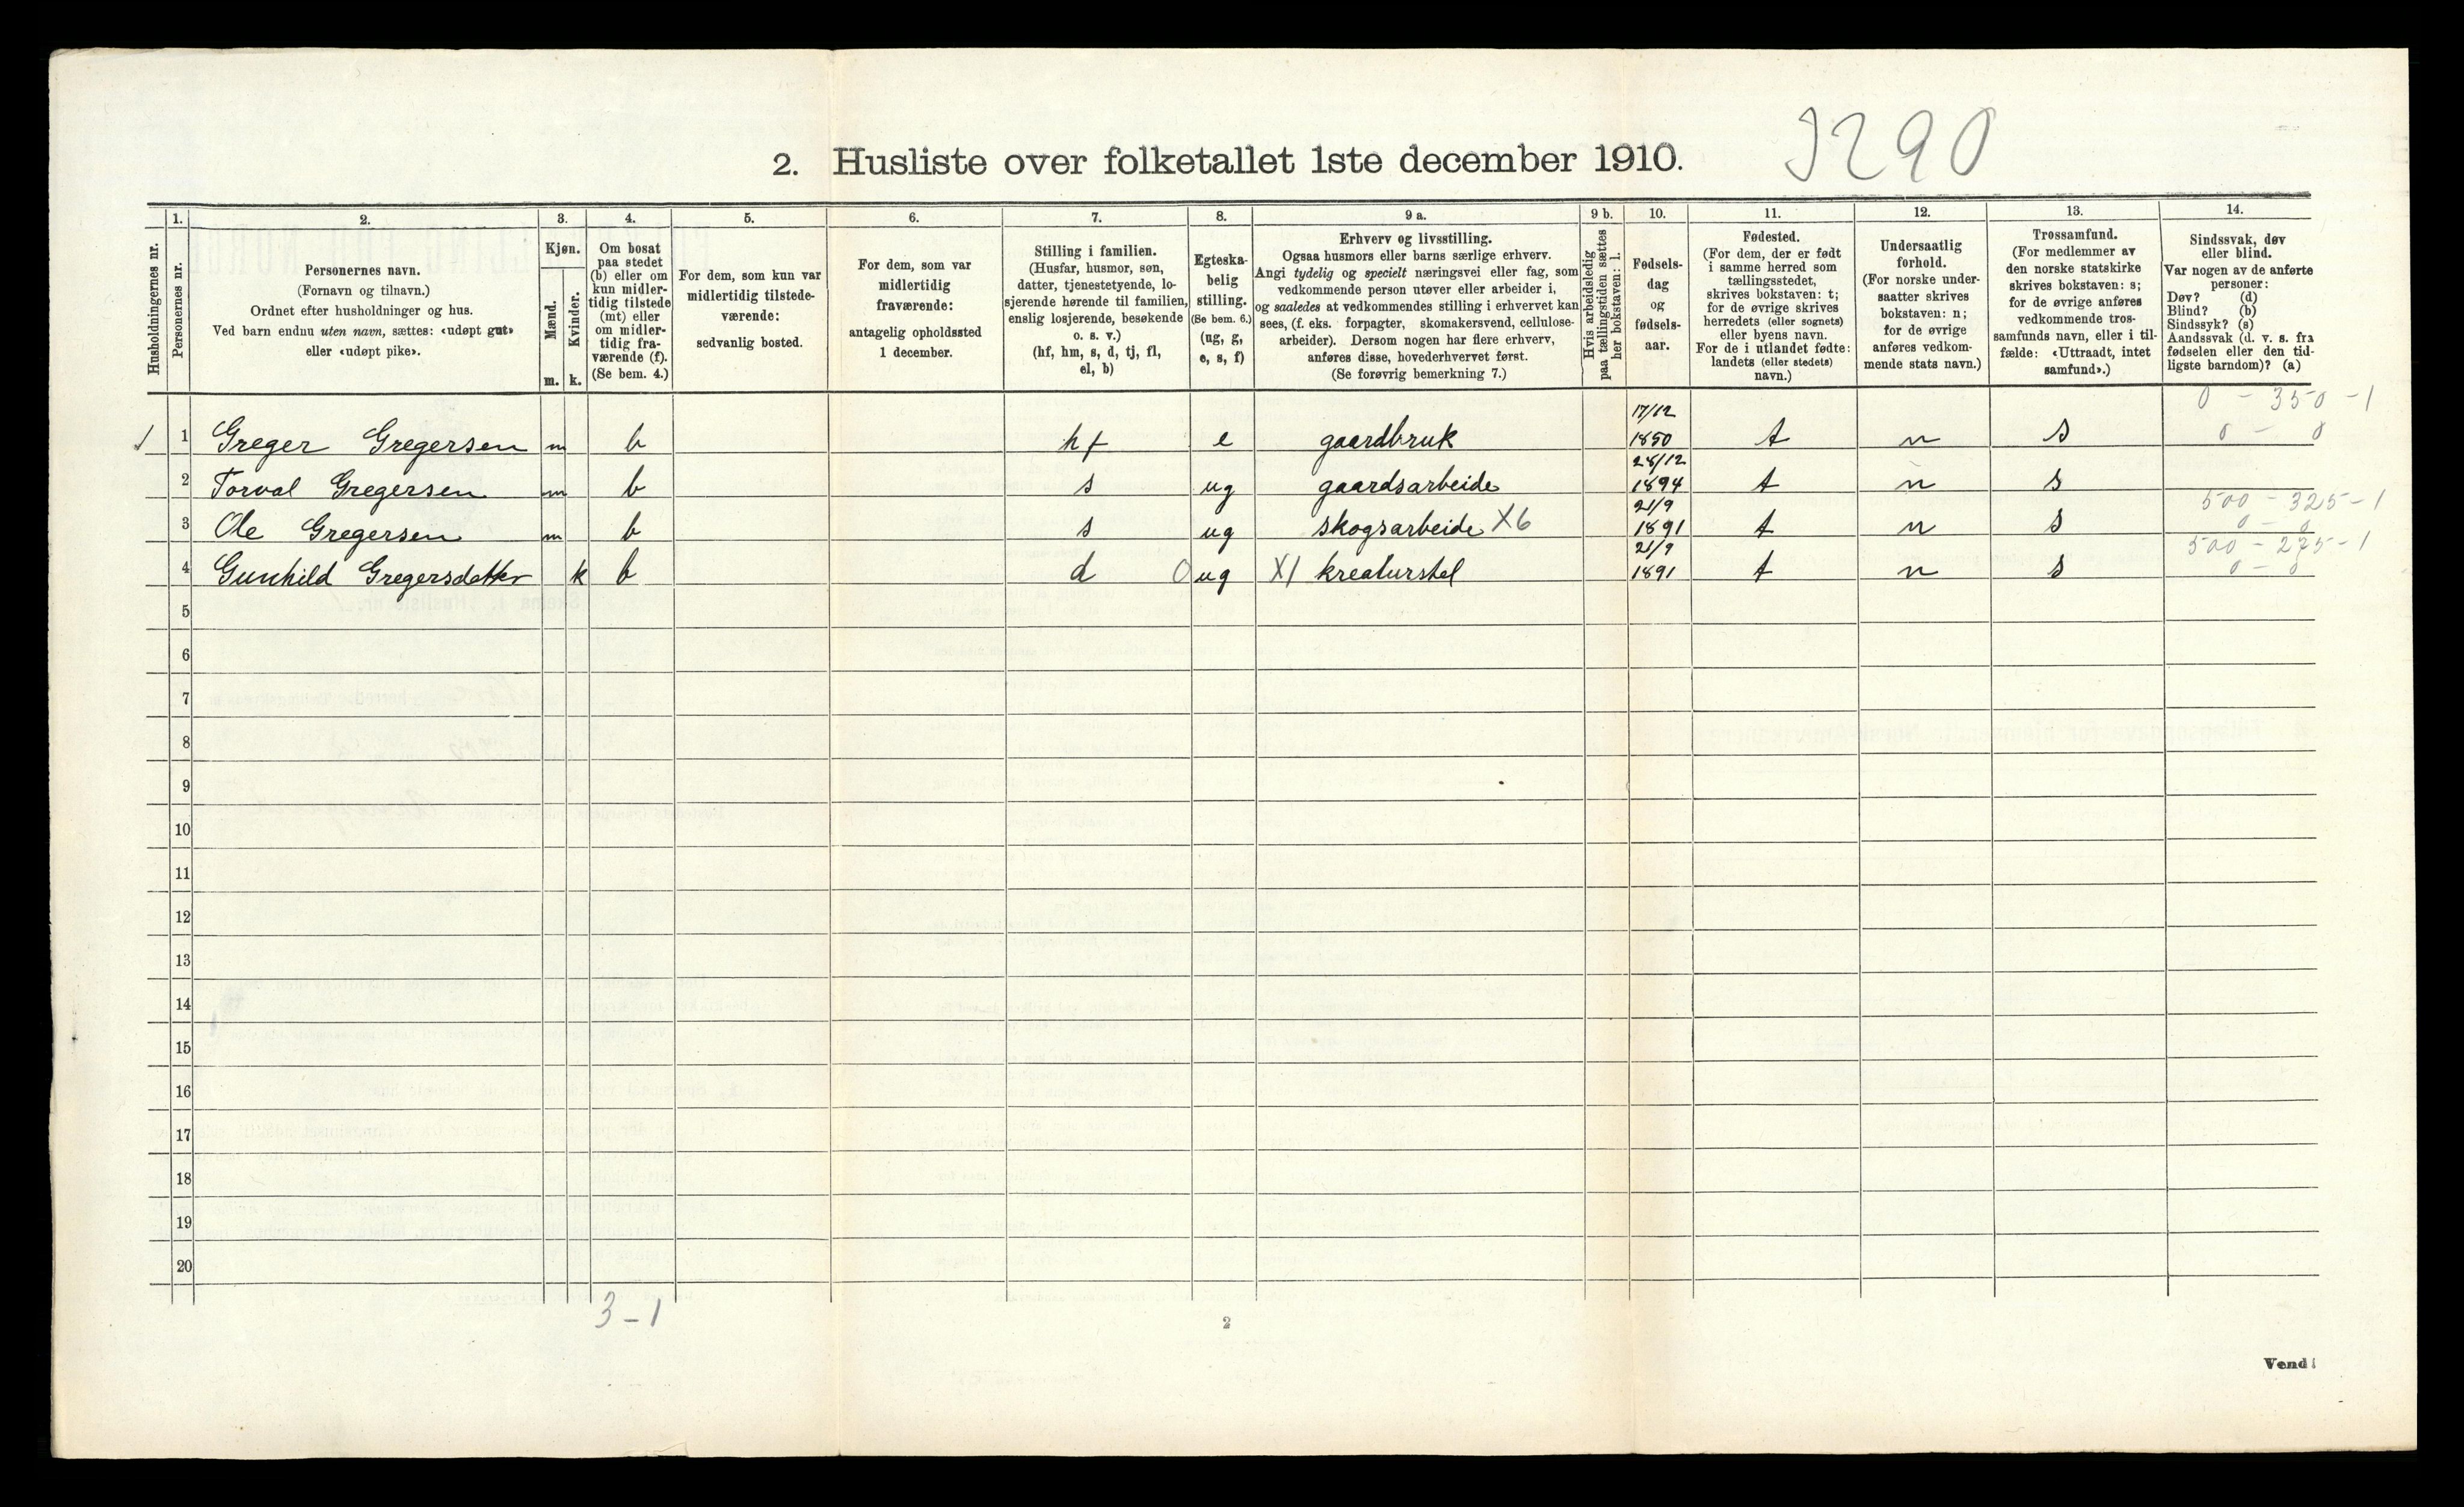 3290
2. Husliste over folketallet 1ste december 1910.
1. 2. 3. 4. 5. 6. 7. 8. 9 a. 9 b. 10. 11. 12. 13. 14.
Husholdningernes nr.
Personernes nr.
Personernes navn.
(Fornavn og tilnavn.)
Ordnet efter husholdninger og hus.
Ved barn endnu uten navn, sættes: «udøpt gut»
eller «udøpt pike».
Kjøn.
Mænd.
Kvinder.
m. k.
Om bosat
paa stedet
(b) eller om
kun midler-
tidig tilstede
(mt) eller
om midler-
tidig fra-
værende (f).
(Se bem. 4.)
For dem, som kun var
midlertidig tilstede-
værende:
sedvanlig bosted.
For dem, som var
midlertidig
fraværende:
antagelig opholdssted
1 december.
Stilling i familien.
(Husfar, husmor, søn,
datter, tjenestetyende, lo-
sjerende hørende til familien,
enslig losjerende, besøkende
o. s. v.)
(hf, hm, s, d, tj, fl,
el, b)
Egteska-
belig
stilling.
(Se bem. 6.)
(ug, g,
e, s, f)
Erhverv og livsstilling.
Ogsaa husmors eller barns særlige erhverv.
Angi tydelig og specielt næringsvei eller fag, som
vedkommende person utøver eller arbeider i,
og saaledes at vedkommendes stilling i erhvervet kan
sees, (f. eks. forpagter, skomakersvend, cellulose-
arbeider). Dersom nogen har flere erhverv,
anføres disse, hovederhvervet først.
(Se forøvrig bemerkning 7.)
Hvis arbeidsledig
paa tællingstiden sættes
her bokstaven: l.
Fødsels-
dag
og
fødsels-
aar.
Fødested.
(For dem, der er født
i samme herred som
tællingsstedet,
skrives bokstaven: t;
for de øvrige skrives
herredets (eller sognets)
eller byens navn.
For de i utlandet fødte:
landets (eller stedets)
navn.)
Undersaatlig
forhold.
(For norske under-
saatter skrives
bokstaven: n;
for de øvrige
anføres vedkom-
mende stats navn.)
Trossamfund.
(For medlemmer av
den norske statskirke
skrives bokstaven: s;
for de øvrige anføres
vedkommende tros-
samfunds navn, eller i til-
fælde: «Uttraadt, intet
samfund».)
Sindssvak, døv
eller blind.
Var nogen av de anførte
personer:
Døv? (d)
Blind? (b)
Sindssyk? (s)
Aandssvak (d. v. s. fra
fødselen eller den tid-
ligste barndom)? (a)
17/12 0 - 350 - 1
1 Greger Gregersen m b hf e gaardbruk 1850 t n s 0 - 0
28/12
2 Torval Gregersen m b s ug gaardsarbeide 1894 t n s
21/9 500 - 325 - 1
3 Ole Gregersen m b s ug skogsarbeide X6 1891 t n s 0 - 0
21/9 500 - 275 - 1
4 Gunhild Gregersdatter k b d 0 ug X1 kreaturstel 1891 t n s 0 - 0
5
6
7
8
9
10
11
12
13
14
15
16
17
18
19
20
3 - 1
2
Vend!